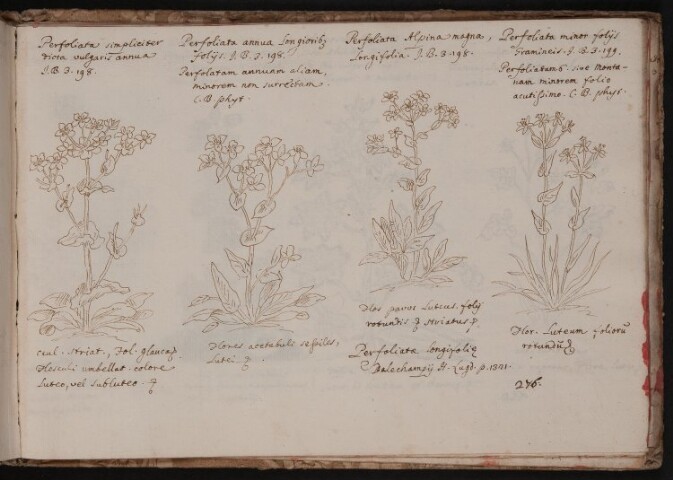 Perfoliata simpliciter
dicta vulgaris annua
J.B. 3. 198.
Perfoliata annua Longiorib9
folijs. J.B. 3. 198.
Perfoliatam annuam aliam,
minorem non surrectam.
C.B phyt.
Perfoliata Alpina magna,
Longifolia. J.B. 3-198.
Perfoliata minor folijs
Gramineis. J.B. 3. 199.
sive monta-
nam minorem folio
acutissimo. C.B. phyt.
caul. striat., fol. glauca
flosculi umbellat. colore
Luteo, vel subluteo.
flores acetabulis sessiles,
Lutei
flos parvus Luteus, folijs
rotundis striatus
Perfoliata longifoliae
Dalechampij H. Lugd. p. 1301.
flor. Luteum, foliorum
276.